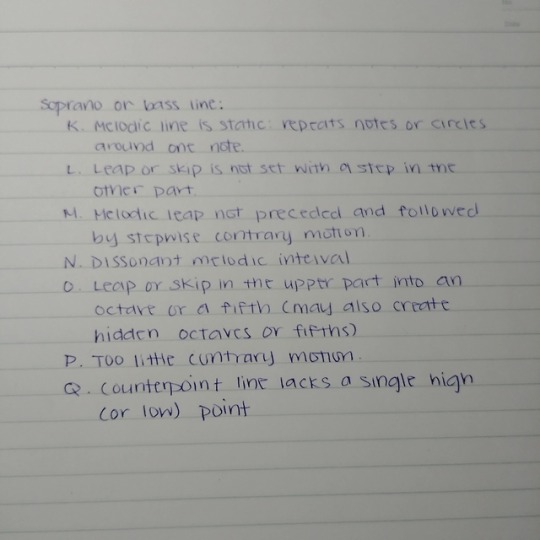 Soprano or bass line:
K. Melodic line is static: repeats notes or circles
around one note.
L. Leap or skip is not set with a step in the
other part.
M. Melodic leap not preceded and followed
by stepwise contrary motion.
N. Dissonant melodic interval
O. Leap or skip in the upper part into an
octave or a fifth (may also create
hidden octaves or fifths)
P. Too little contrary motion.
Q. Counterpoint line lacks a single high
(or low) point